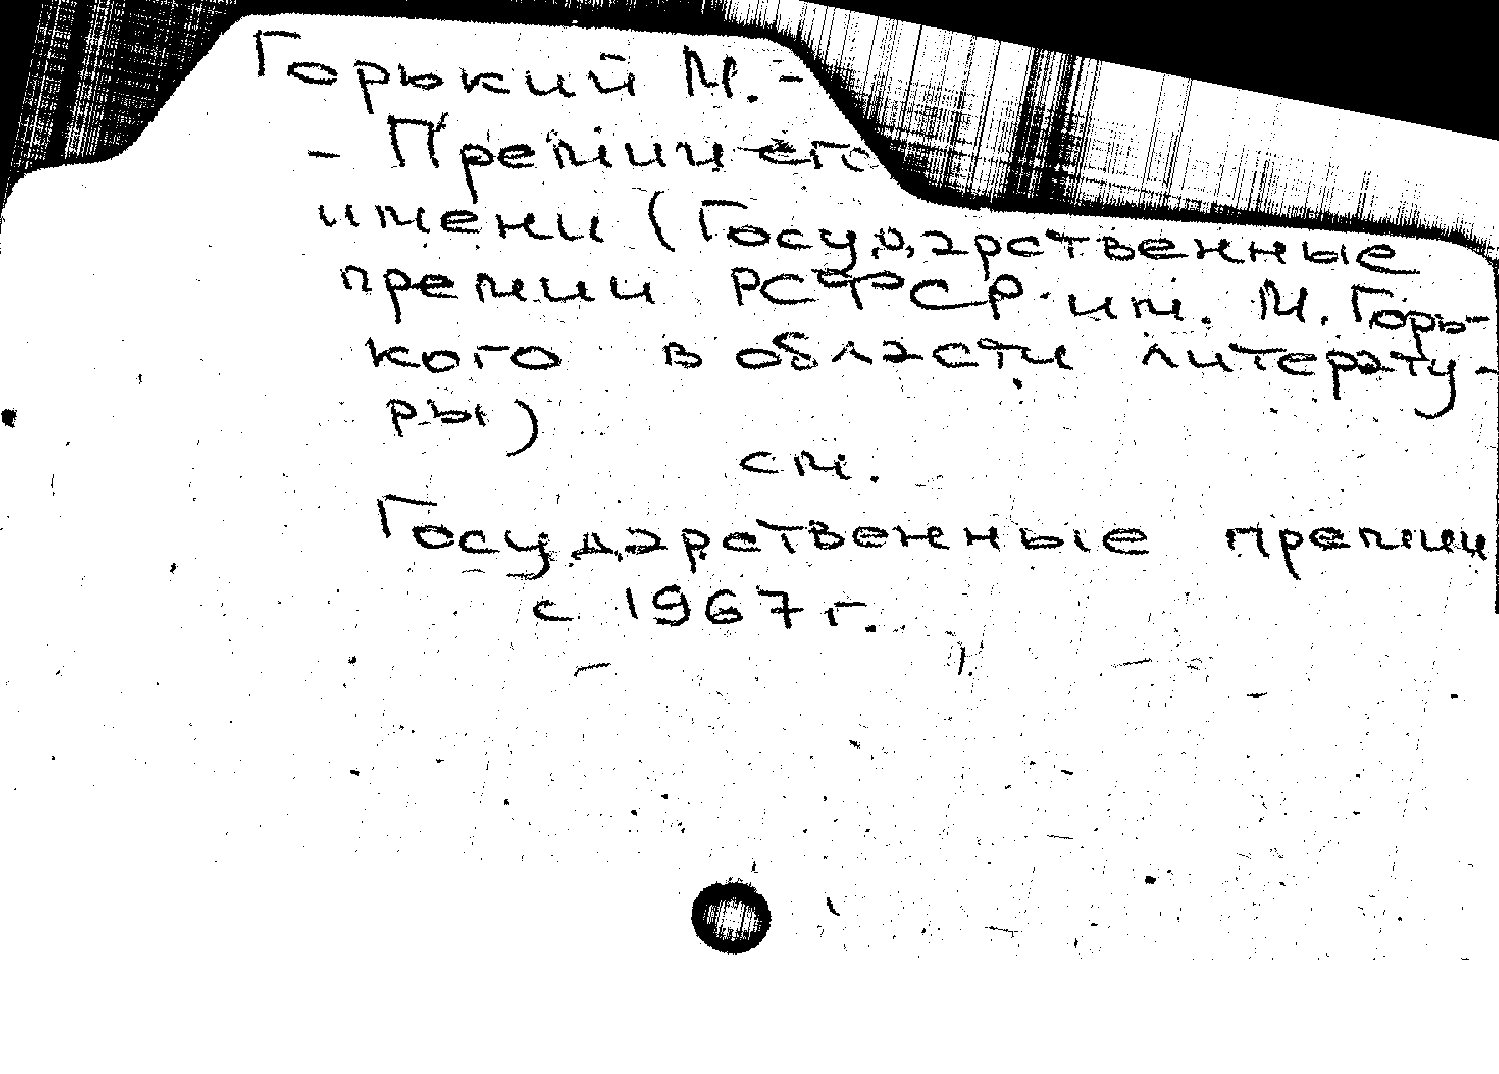 Горький М. -
- Премии его
имени (Государственные
премии РСФСР им. М. Горь-
кого в области литерату-
ры)
см.
Государственные премии
с 1967 г.